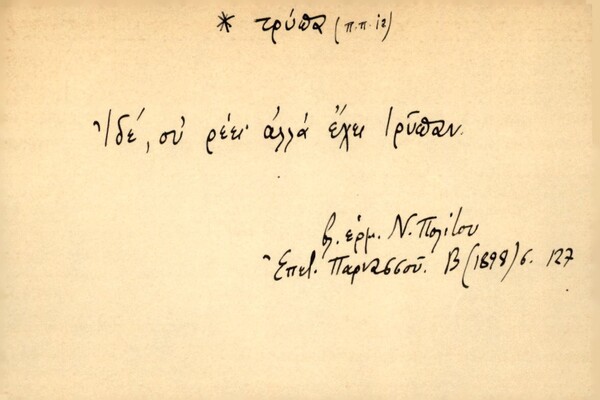 * τρύπα (π.π. 12)
Ἰδέ, οὐ ρέει ἀλλά ἔχει τρῦπαν.
βλ. ἑρμ. Ν. Πολίτου
Ἐπετ. Παρνασσοῦ. Β (1898) σ. 127